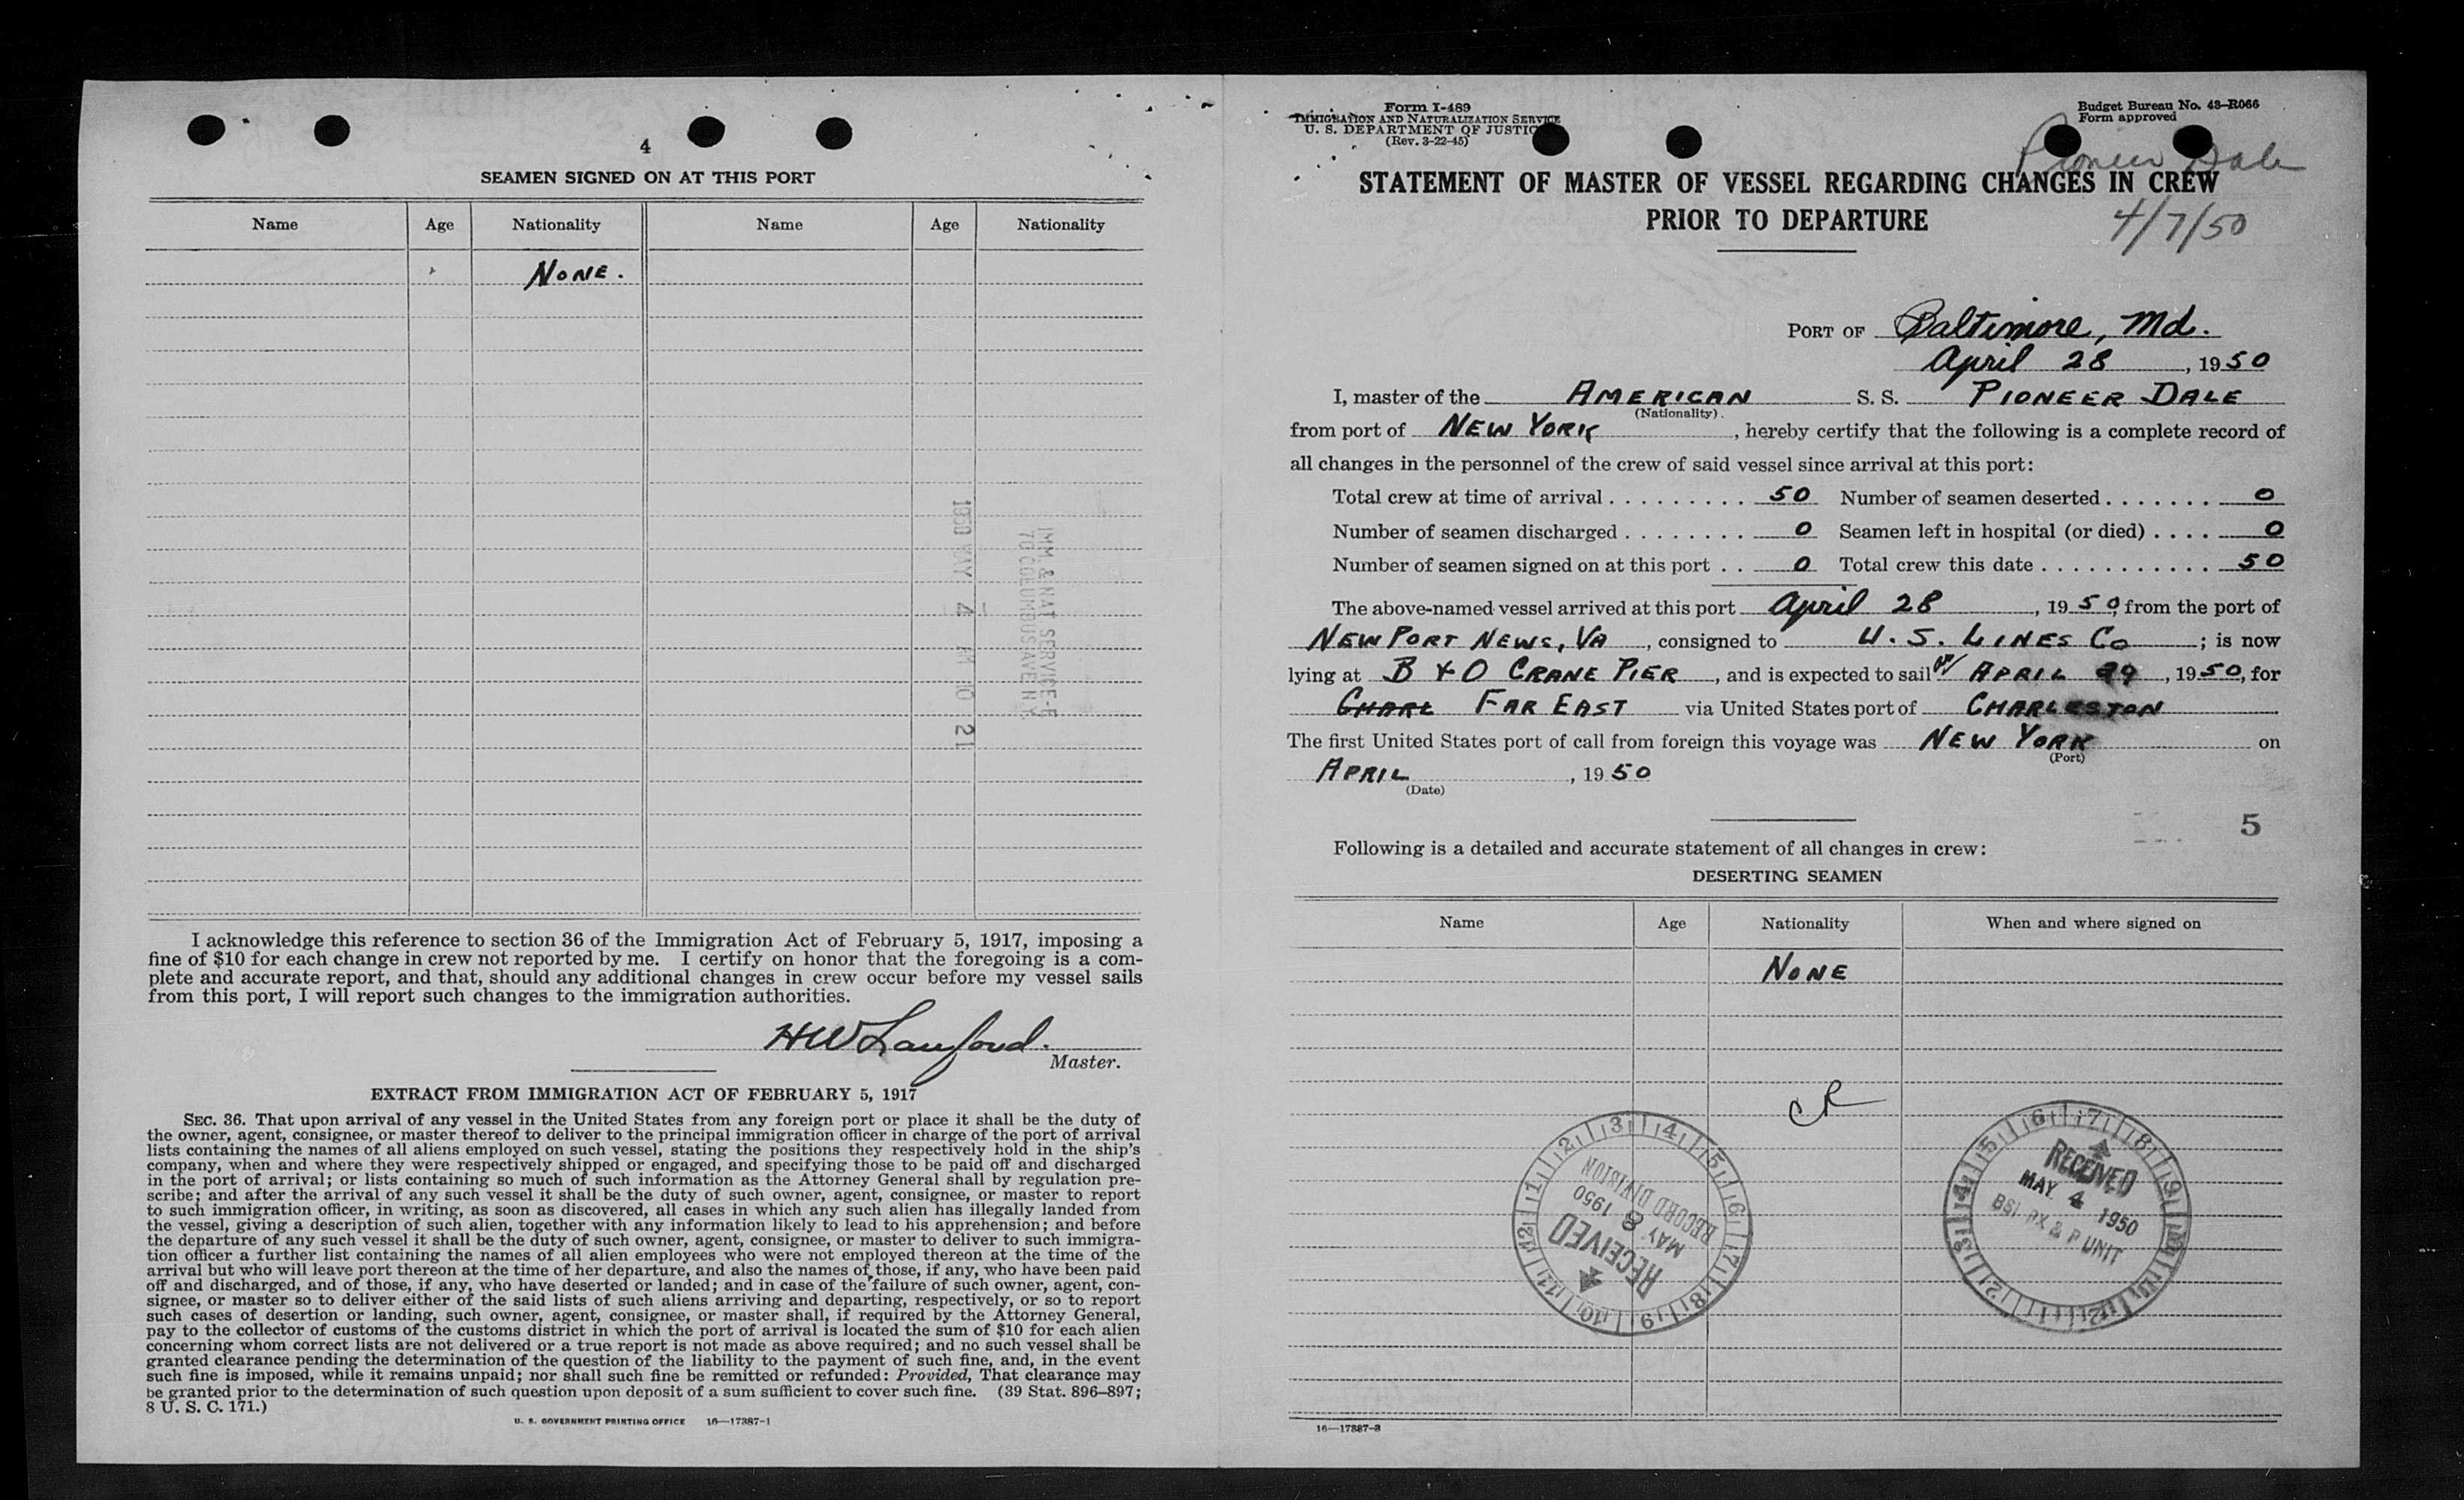 4
SEAMEN SIGNED ON AT THIS PORT
Name Age Nationality Name Age Nationality
NONE.
1950 MAY 4 AM 10 21
IMM. & NAT SERVICE-5
70 COLUMBUS AVE N.Y.
I acknowledge this reference to section 36 of the Immigration Act of February 5, 1917, imposing a
fine of $10 for each change in crew not reported by me. I certify on honor that the foregoing is a com-
plete and accurate report, and that, should any additional changes in crew occur before my vessel sails
from this port, I will report such changes to the immigration authorities.
HW Lanford.
Master.
EXTRACT FROM IMMIGRATION ACT OF FEBRUARY 5, 1917
SEC. 36. That upon arrival of any vessel in the United States from any foreign port or place it shall be the duty of
the owner, agent, consignee, or master thereof to deliver to the principal immigration officer in charge of the port of arrival
lists containing the names of all aliens employed on such vessel, stating the positions they respectively hold in the ship's
company, when and where they were respectively shipped or engaged, and specifying those to be paid off and discharged
in the port of arrival; or lists containing so much of such information as the Attorney General shall by regulation pre-
scribe; and after the arrival of any such vessel it shall be the duty of such owner, agent, consignee, or master to report
to such immigration officer, in writing, as soon as discovered, all cases in which any such alien has illegally landed from
the vessel, giving a description of such alien, together with any information likely to lead to his apprehension; and before
the departure of any such vessel it shall be the duty of such owner, agent, consignee, or master to deliver to such immigra-
tion officer a further list containing the names of all alien employees who were not employed thereon at the time of the
arrival but who will leave port thereon at the time of her departure, and also the names of those, if any, who have been paid
off and discharged, and of those, if any, who have deserted or landed; and in case of the failure of such owner, agent, con-
signee, or master so to deliver either of the said lists of such aliens arriving and departing, respectively, or so to report
such cases of desertion or landing, such owner, agent, consignee, or master shall, if required by the Attorney General,
pay to the collector of customs of the customs district in which the port of arrival is located the sum of $10 for each alien
concerning whom correct lists are not delivered or a true report is not made as above required; and no such vessel shall be
granted clearance pending the determination of the question of the liability to the payment of such fine, and, in the event
such fine is imposed, while it remains unpaid; nor shall such fine be remitted or refunded: Provided, That clearance may
be granted prior to the determination of such question upon deposit of a sum sufficient to cover such fine. (39 Stat. 896–897;
8 U. S. C. 171.)
U. S. GOVERNMENT PRINTING OFFICE 16—17387-1
Form I-489
IMMIGRATION AND NATURALIZATION SERVICE
U. S. DEPARTMENT OF JUSTICE
(Rev. 3-22-45)
Budget Bureau No. 43–R066
Form approved
Pioneer Dale
STATEMENT OF MASTER OF VESSEL REGARDING CHANGES IN CREW
PRIOR TO DEPARTURE
4/7/50
PORT OF Baltimore, Md.
April 28, 1950
I, master of the AMERICAN S. S. PIONEER DALE
(Nationality)
from port of NEW YORK, hereby certify that the following is a complete record of
all changes in the personnel of the crew of said vessel since arrival at this port:
Total crew at time of arrival . . . . . . . . . 50 Number of seamen deserted . . . . . . . 0
Number of seamen discharged . . . . . . . . 0 Seamen left in hospital (or died) . . . . 0
Number of seamen signed on at this port . . 0 Total crew this date . . . . . . . . . . . . 50
The above-named vessel arrived at this port April 28, 1950, from the port of
NEWPORT NEWS, VA, consigned to U. S. LINES CO; is now
lying at B & O CRANE PIER, and is expected to sail on APRIL 29, 1950, for
CHARL FAR EAST via United States port of CHARLESTON
The first United States port of call from foreign this voyage was NEW YORK on
(Port)
APRIL, 1950
(Date)
5
Following is a detailed and accurate statement of all changes in crew:
DESERTING SEAMEN
Name Age Nationality When and where signed on
NONE
CR
RECEIVED
MAY 8 1950
RECORD DIVISION
1 2 3 4 5 6 7 8 9 10 11 12
RECEIVED
MAY 4 1950
BSI PX & P UNIT
1 2 3 4 5 6 7 8 9 10 11 12
16—17387-3